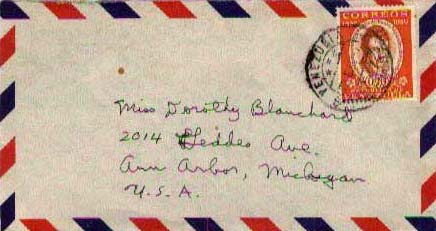 CORREOS
VENEZUEL
Miss Dorothy Blanchard
2014 Geddes Ave.
Ann Arbor, Michigan
U.S.A.